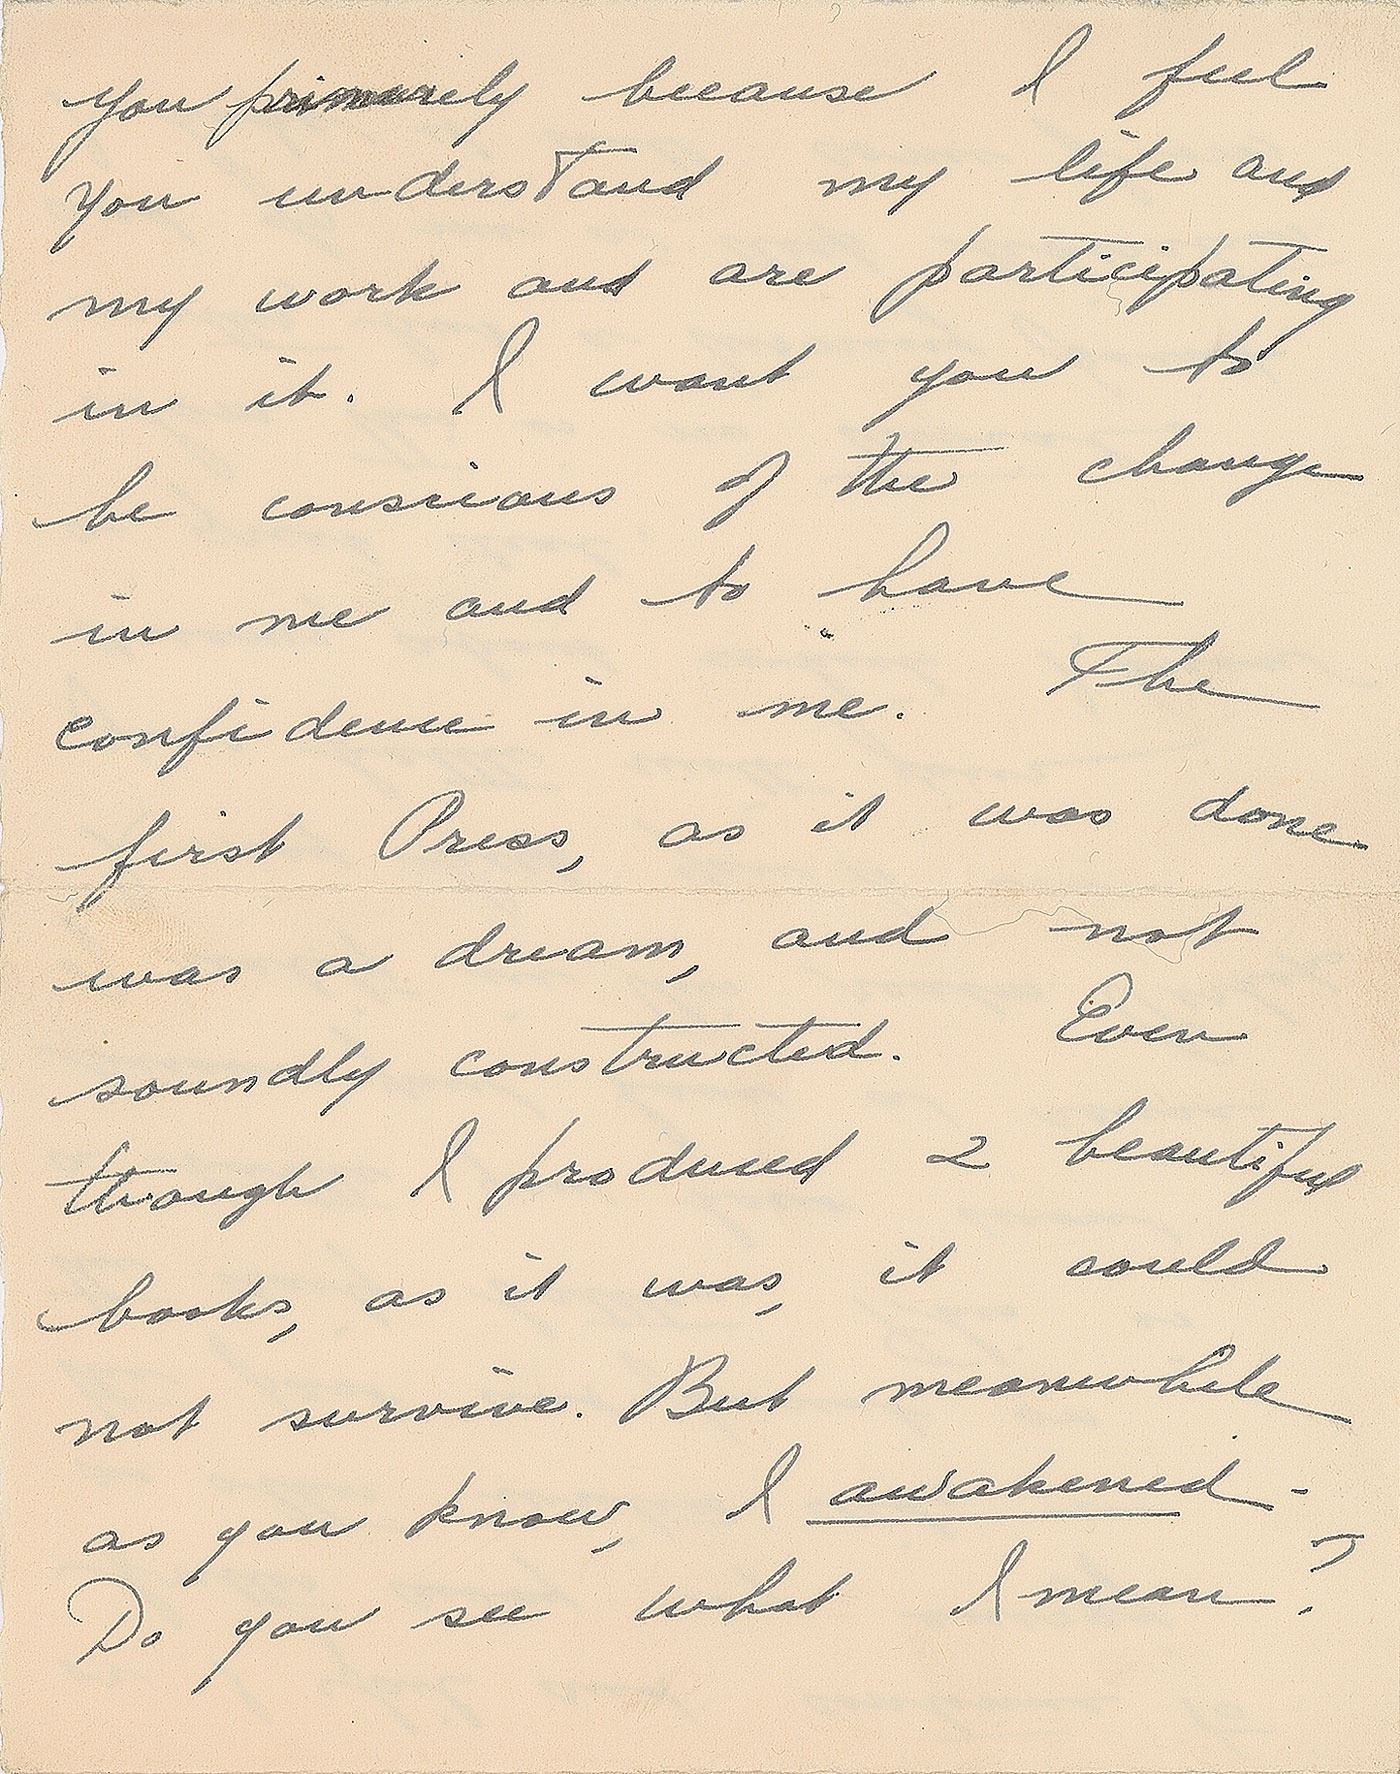 you primarily because I feel
you understand my life and
my work and are participating
in it. I want you to
be consious of the change
in me and to have
confidence in me. The
first Press, as it was done
was a dream, and not
soundly constructed. Even
though I produced 2 beautiful
books, as it was, it could
not survive. But meanwhile
as you know, I awakened -
Do you see what I mean?